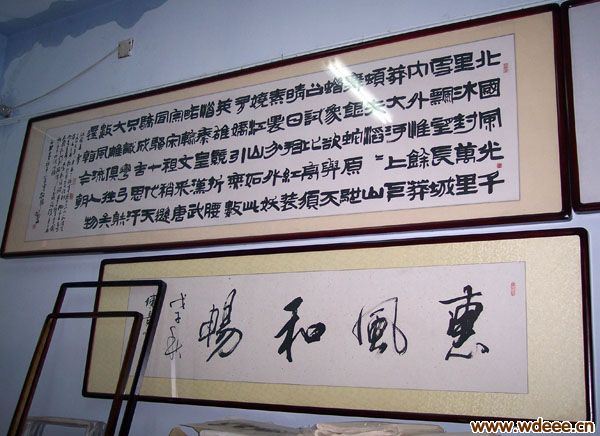 北國風光千
里冰封萬里
雪飄望長城
内外惟餘莽
莽大河上下
頓失滔滔山
舞銀蛇原馳
蠟象欲與天
公試比高須
晴日看紅裝
素裹分外妖
嬈江山如此
多嬌引無數
英雄競折腰
惜秦皇漢武
略輸文采唐
宗宋祖稍遜
風騷一代天
驕成吉思汗
只識彎弓射
大雕俱往矣
數風流人物
還看今朝
惠風和暢
戊子之秋
www.wdeee.cn